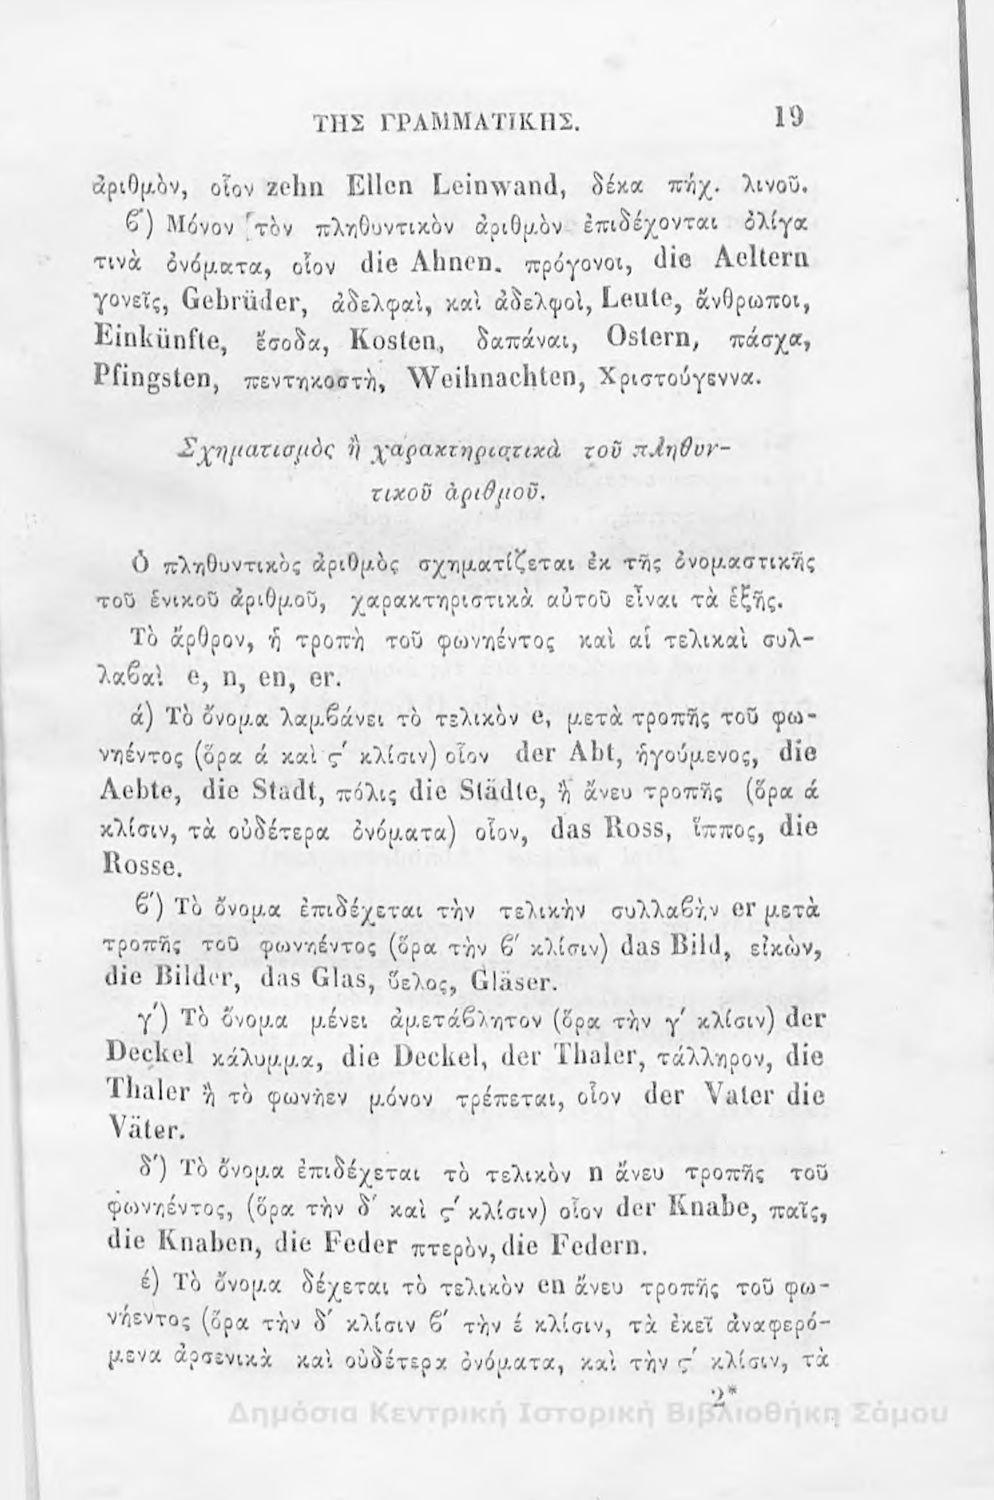 ΤΗΣ ΓΡΑΜΜΑΤΙΚΗΣ. 19
ἀριθμὸν, οἷον zehn Ellen Leinwand, δέκα πήχ. λινοῦ.
ϐ') Μόνον τὸν πληθυντικὸν ἀριθμὸν ἐπιδέχονται ὀλίγα
τινὰ ὀνόματα, οἷον die Ahnen. πρόγονοι, die Aeltern
γονεῖς, Gebrüder, ἀδελφαὶ, καὶ ἀδελφοὶ, Leute, ἄνθρωποι,
Einkünfte, ἔσοδα, Kosten, δαπάναι, Ostern, πάσχα,
Pfingsten, πεντηκοστὴ, Weihnachten, Χριστούγεννα.
Σχηματισμὸς ἢ χαρακτηριστικὰ τοῦ πληθυν-
τικοῦ ἀριθμοῦ.
Ὁ πληθυντικὸς ἀριθμὸς σχηματίζεται ἐκ τῆς ὀνομαστικῆς
τοῦ ἑνικοῦ ἀριθμοῦ, χαρακτηριστικὰ αὐτοῦ εἶναι τὰ ἑξῆς.
Τὸ ἄρθρον, ἡ τροπὴ τοῦ φωνηέντος καὶ αἱ τελικαὶ συλ-
λαϐαὶ e, n, en, er.
ά) Τὸ ὄνομα λαμϐάνει τὸ τελικὸν e, μετὰ τροπῆς τοῦ φω-
νηέντος (ὅρα ά καὶ ς' κλίσιν) οἷον der Abt, ἡγούμενος, die
Aebte, die Stadt, πόλις die Städte, ἢ ἄνευ τροπῆς (ὅρα ά
κλίσιν, τὰ οὐδέτερα ὀνόματα) οἷον, das Ross, ἵππος, die
Rosse.
ϐ') Τὸ ὄνομα ἐπιδέχεται τὴν τελικὴν συλλαϐὴν er μετὰ
τροπῆς τοῦ φωνηέντος (ὅρα τὴν ϐ' κλίσιν) das Bild, εἰκὼν,
die Bilder, das Glas, ὕελος, Gläser.
γ') Τὸ ὄνομα μένει ἀμετάϐλητον (ὅρα τὴν γ' κλίσιν) der
Deckel κάλυμμα, die Deckel, der Thaler, τάλληρον, die
Thaler ἢ τὸ φωνῆεν μόνον τρέπεται, οἷον der Vater die
Väter.
δ') Τὸ ὄνομα ἐπιδέχεται τὸ τελικὸν n ἄνευ τροπῆς τοῦ
φωνηέντος, (ὅρα τὴν δ' καὶ ς' κλίσιν) οἷον der Knabe, παῖς,
die Knaben, die Feder πτερὸν, die Federn.
έ) Τὸ ὄνομα δέχεται τὸ τελικὸν en ἄνευ τροπῆς τοῦ φω-
νήεντος (ὅρα τὴν δ' κλίσιν ϐ' τὴν έ κλίσιν, τὰ ἐκεῖ ἀναφερό-
μενα ἀρσενικὰ καὶ οὐδέτερα ὀνόματα, καὶ τὴν ς' κλίσιν, τὰ
2*
Δημόσια Κεντρική Ιστορική Βιβλιοθήκη Σάμου